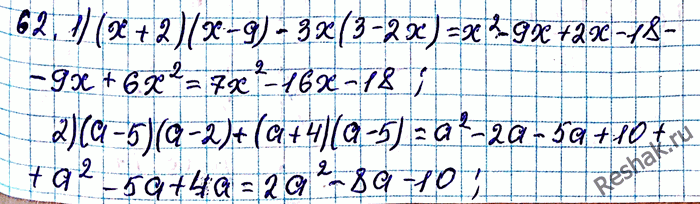 62. 1) (x+2)(x-9) - 3x(3-2x) = x²-9x+2x-18-
-9x+6x² = 7x²-16x-18 ;
2) (a-5)(a-2)+(a+4)(a-5) = a²-2a-5a+10+
+a²-5a+4a = 2a²-8a-10 ;
Reshak.ru